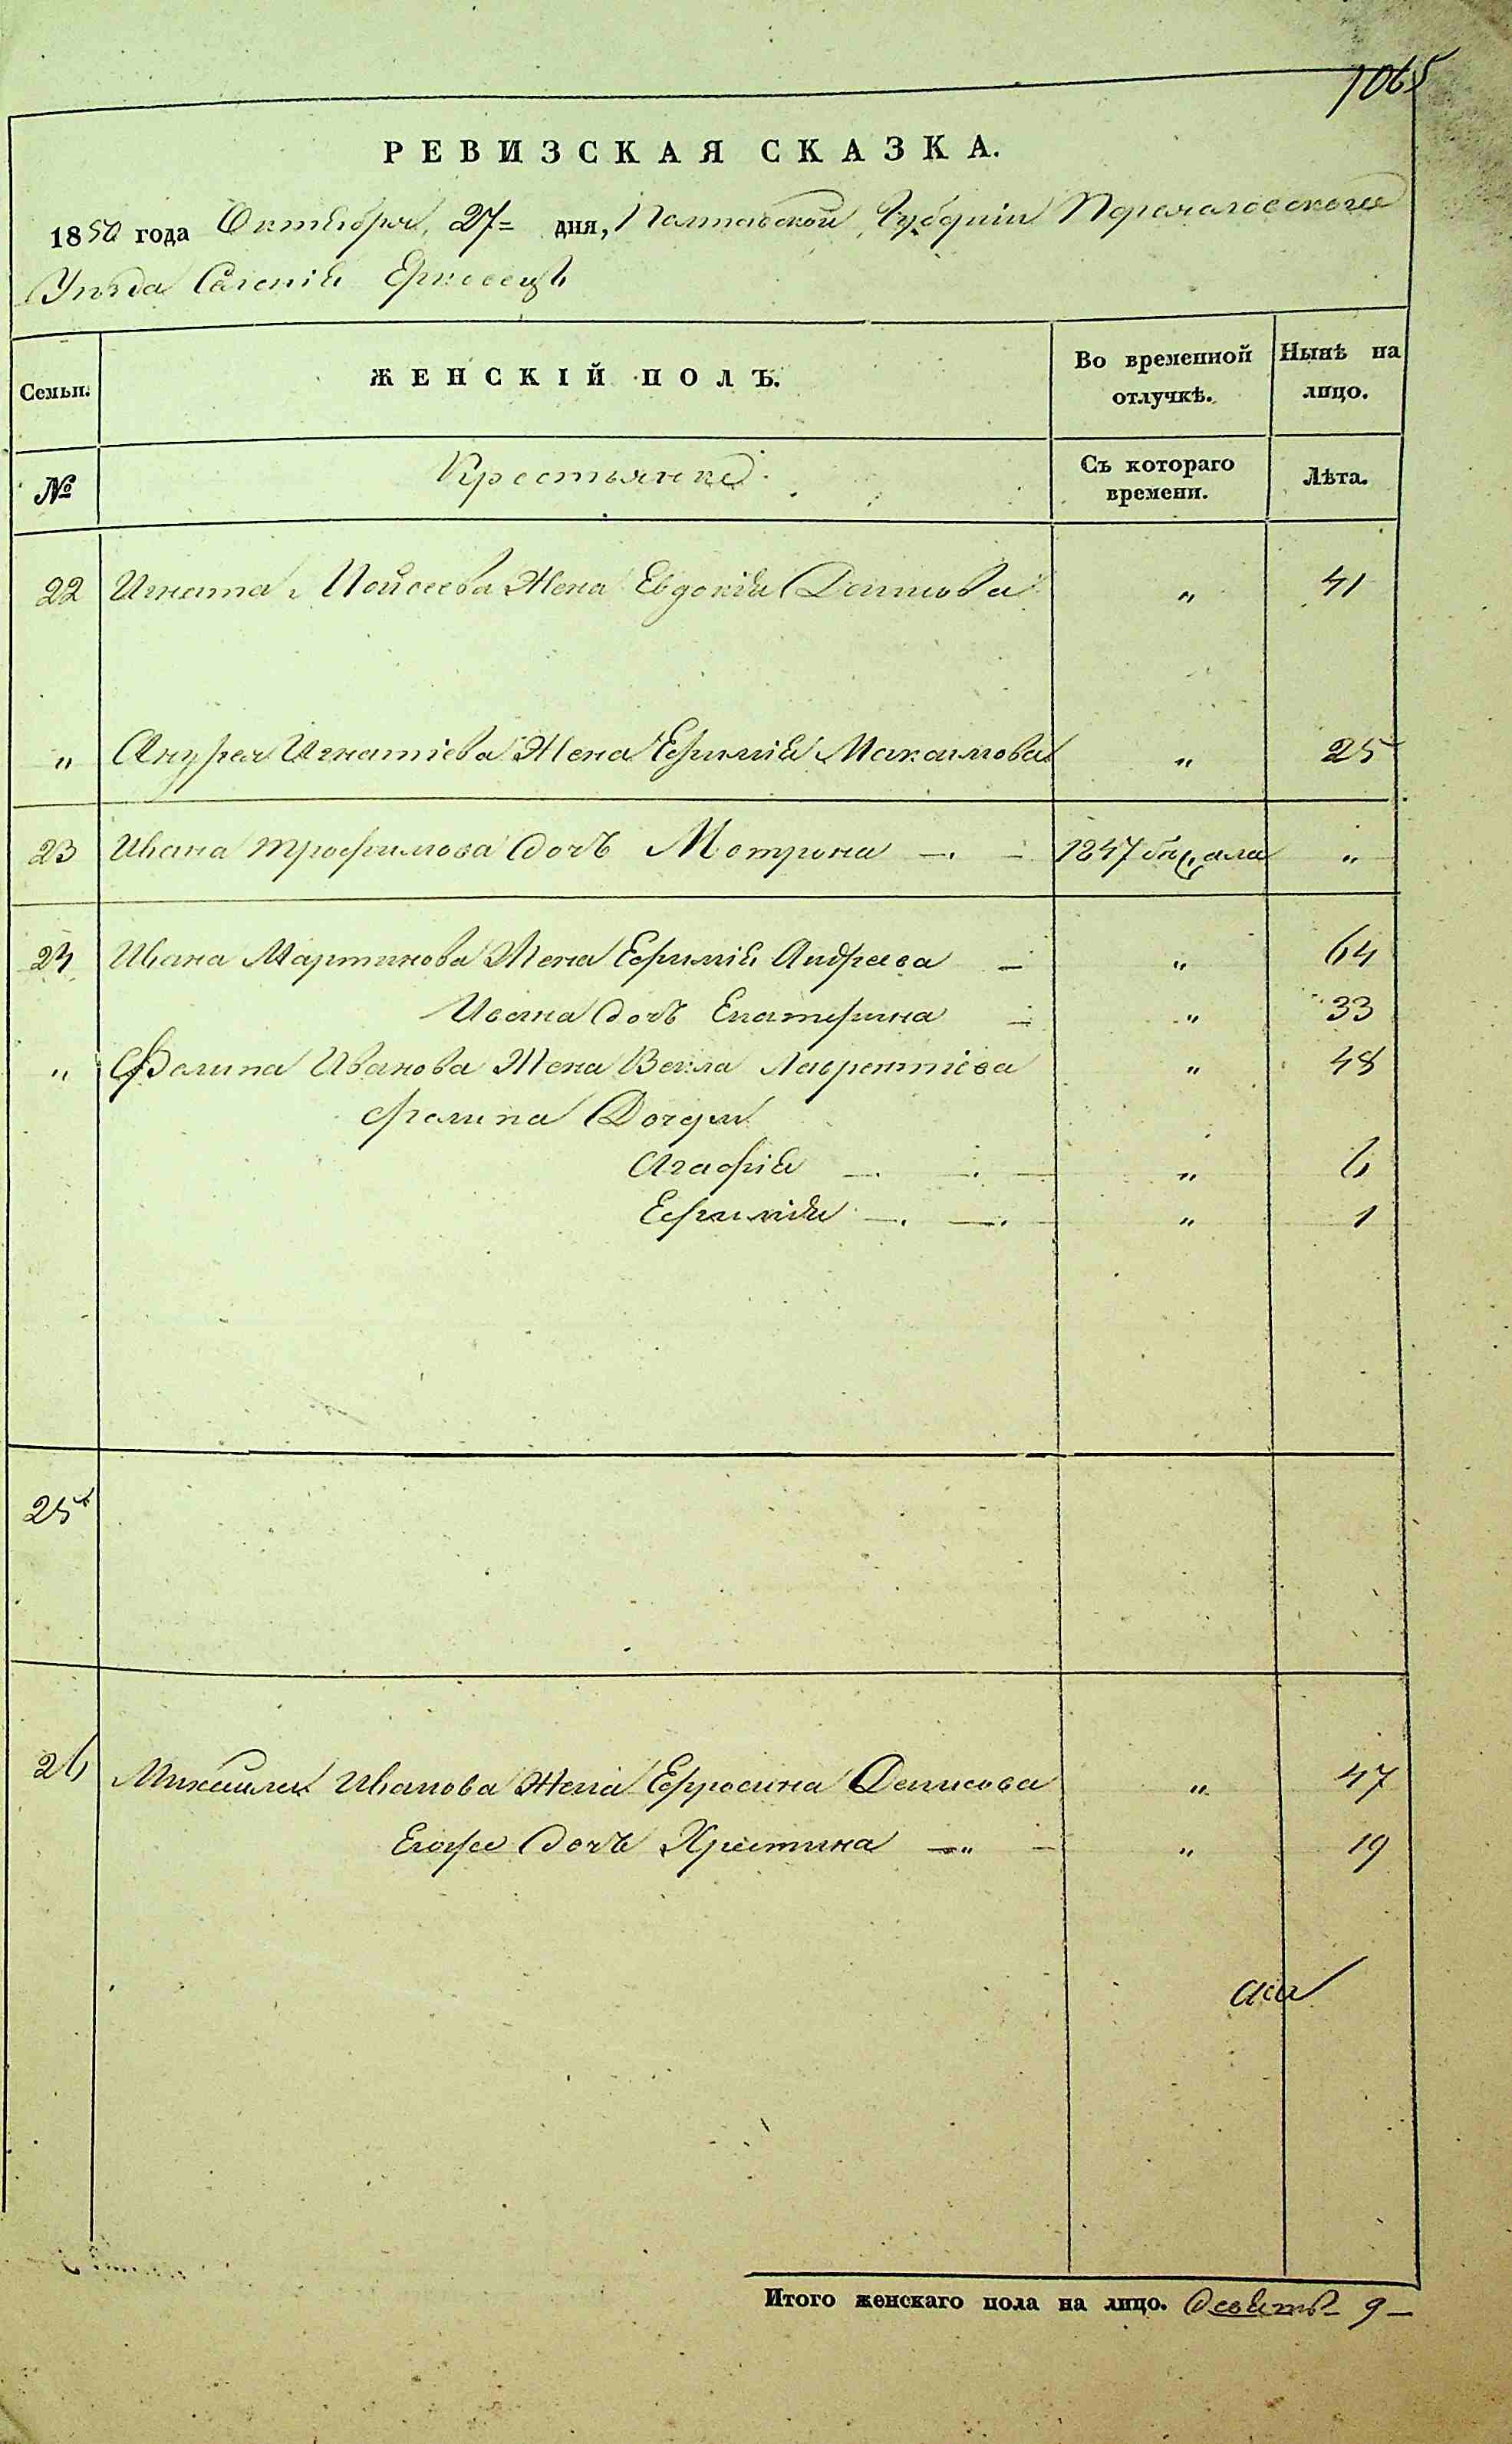 1065
РЕВИЗСКАЯ СКАЗКА.
1850 года Октября 27 = дня, Полтавской Губерніи Переяловского
Уезда Селенія Еркосецъ
Семьи. ЖЕНСКІЙ ПОЛЪ. Во временной отлучкѣ. Нынѣ на лицо.
№ Крестьянка Съ котораго времени. Лѣта.
22 Игната Мойсеева Жена Евдокія " 41
" Андрея Игнатіева Жена Ефимія Максимова " 25
23 Ивана Трофимова дочь Мотрона — - 1847 "
24 Ивана Мартинова Жена Ефимія Андреева — " 64
Ивана дочь Екатерина — " 33
" Филипа Иванова Жена Векла Лаврентіева " 48
Филипа Дочери
Агафія — . — " 6
Ефимія — . — . " 1
25
26 Михайла Иванова Жена Ефросина Денисова " 47
Егоже дочь Христина — " - " 19
Итого женскаго пола на лицо. девять 9 —